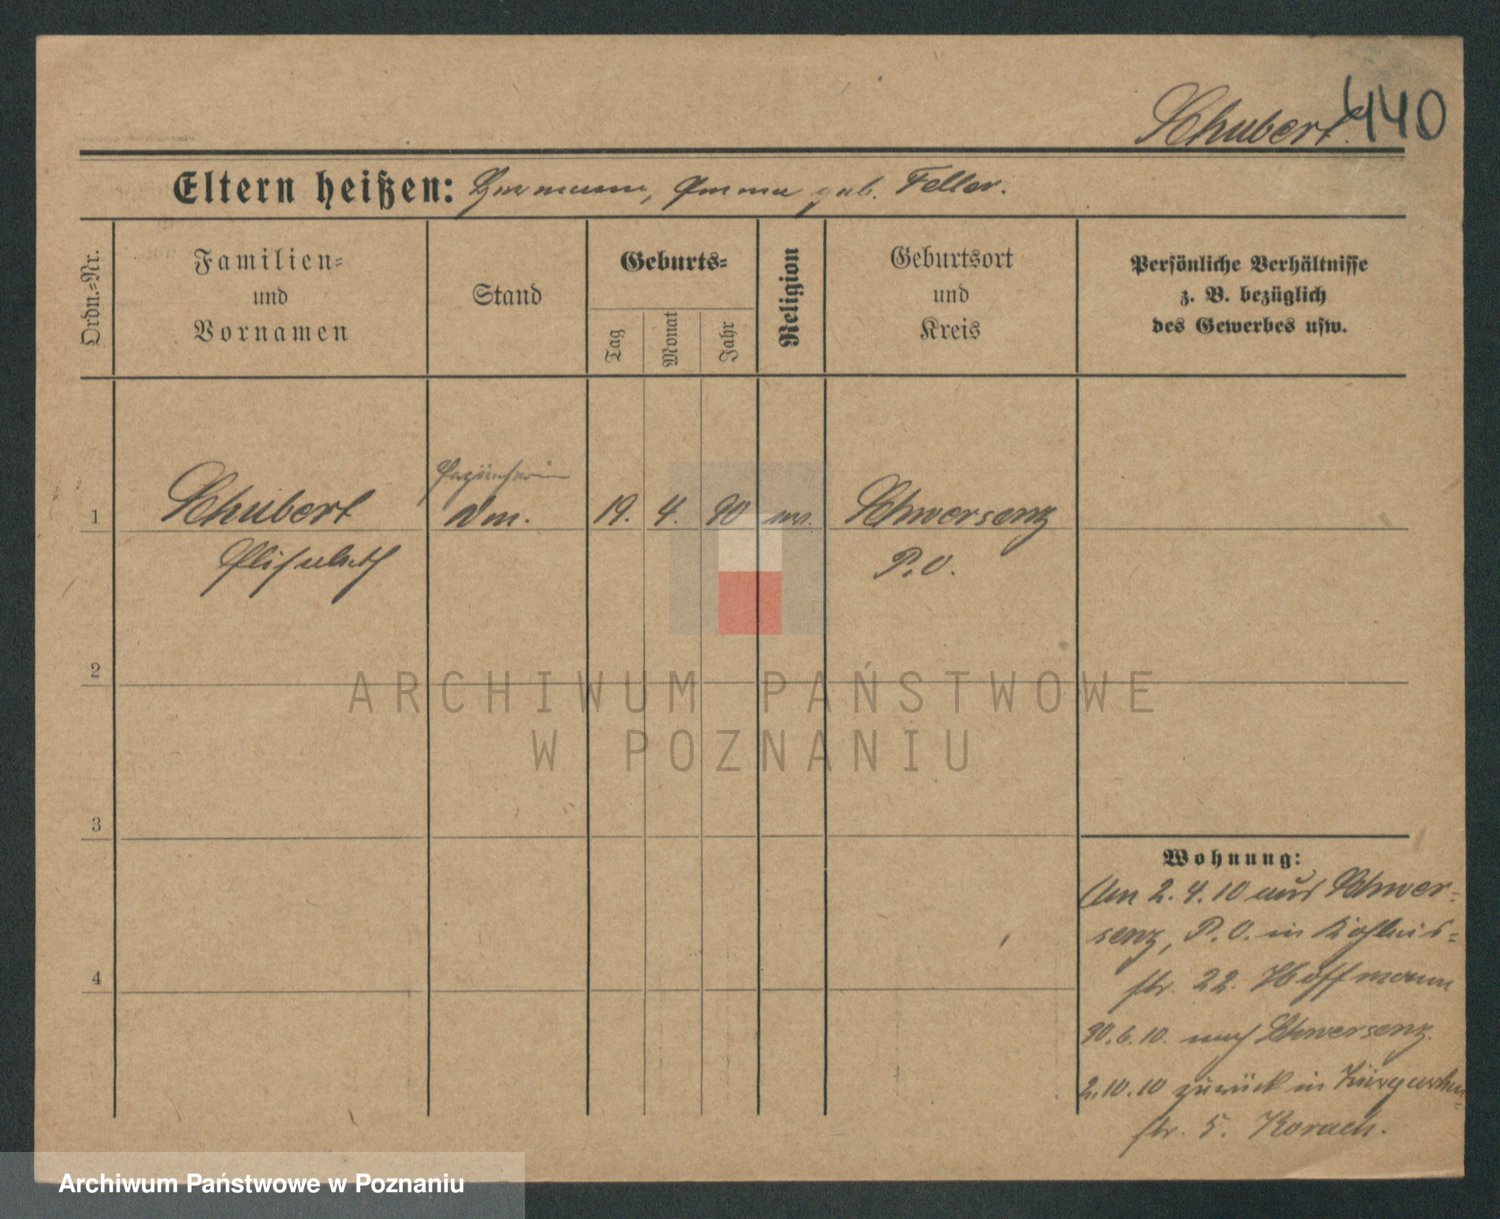 Schubert. 440
Eltern heißen: Hermann, Emma geb. Feller.
Ordn.-Nr.
Familien-
und
Vornamen
Stand
Geburts-
Tag
Monat
Jahr
Religion
Geburtsort
und
Kreis
Persönliche Verhältnisse
z. B. bezüglich
des Gewerbes usw.
1
Schubert
Elisabeth
19. 4. 90
Schwersenz
P. O.
2
3
4
Wohnung:
Am 2. 4. 10 aus Schwer-
senz, P. O. in
str. 22. Hoffmann
30. 6. 10. nach Schwersenz.
2. 10. 10 zurück in
str. 5.
ARCHIWUM PAŃSTWOWE
W POZNANIU
Archiwum Państwowe w Poznaniu